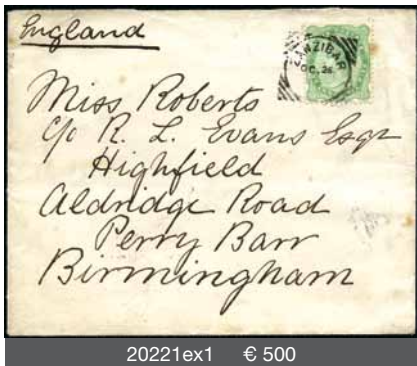 England
ZANZIBAR
OC. 26
Miss Roberts
c/o R. L. Evans Esqr
Highfield
Aldridge Road
Perry Barr
Birmingham
20221ex1 € 500